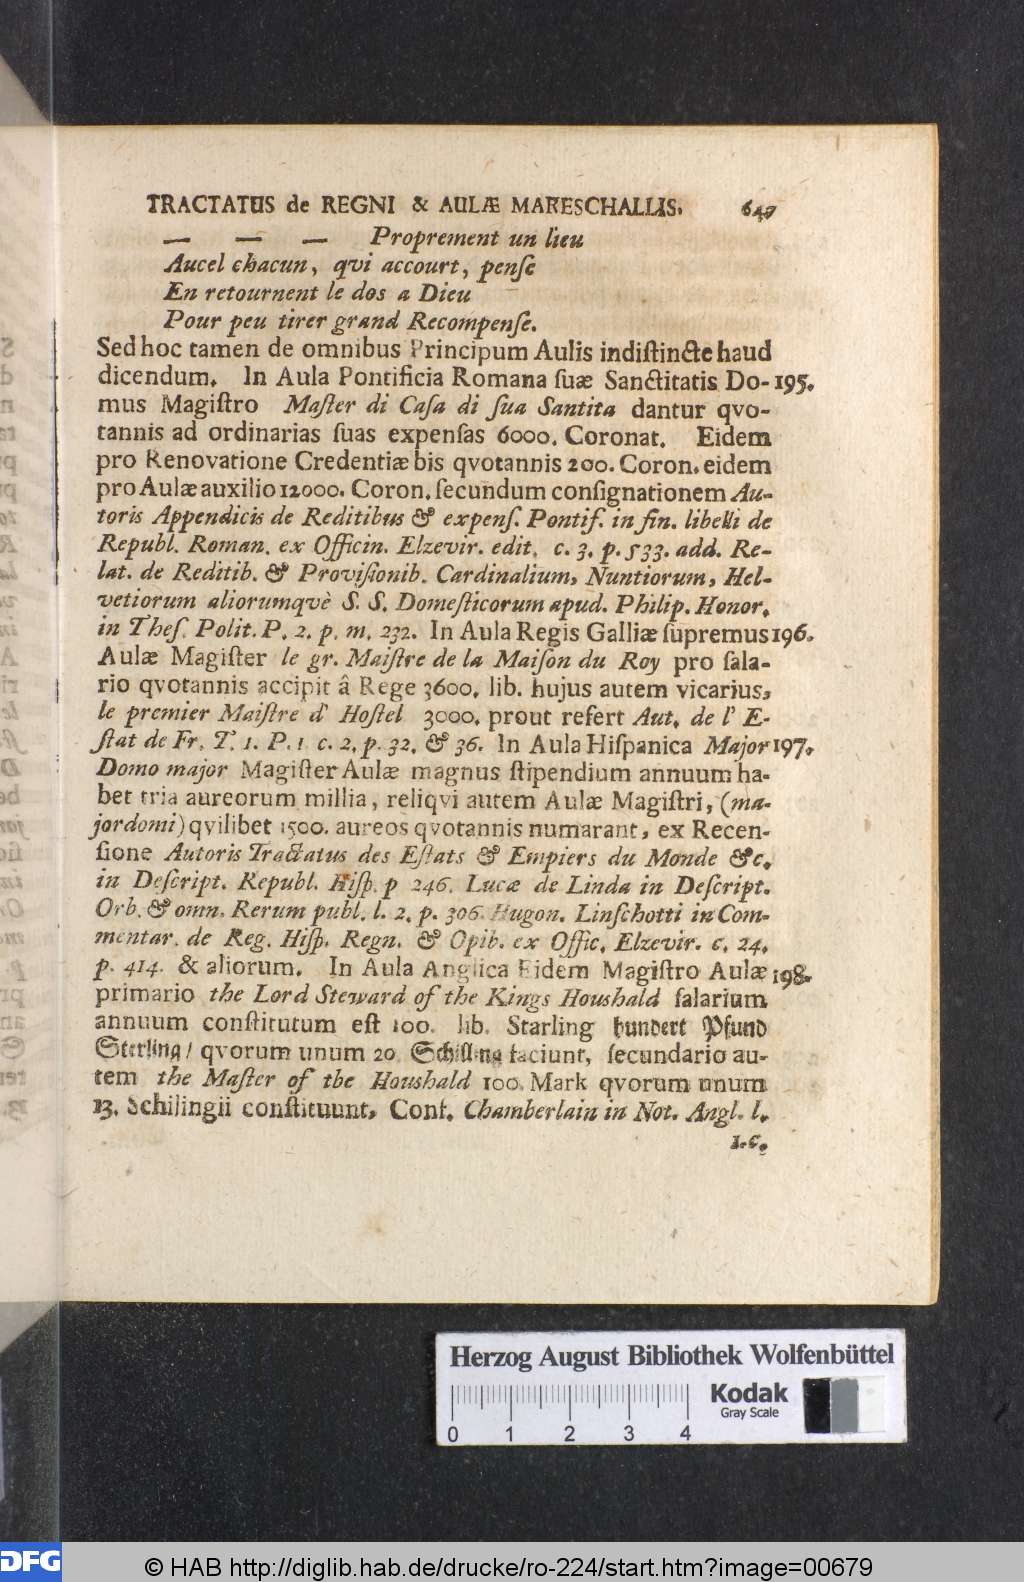 TRACTATUS de REGNI & AULÆ MARESCHALLIS.
— — — Proprement un lieu
Aucel chacun, qvi accourt, penſe
En retournent le dos a Dieu
Pour peu tirer grand Recompenſe.
Sed hoc tamen de omnibus Principum Aulis indiſtincte haud
dicendum. In Aula Pontificia Romana ſuæ Sanctitatis Do- 195.
mus Magiſtro Maſter di Caſa di ſua Santita dantur qvo-
tannis ad ordinarias ſuas expenſas 6000. Coronat. Eidem
pro Renovatione Credentiæ bis qvotannis 200. Coron. eidem
pro Aulæ auxilio 12000. Coron. ſecundum conſignationem Au-
toris Appendicis de Reditibus & expenſ. Pontif. in fin. libelli de
Republ. Roman. ex Officin. Elzevir. edit. c. 3. p. 533. add. Re-
lat. de Reditib. & Proviſionib. Cardinalium, Nuntiorum, Hel-
vetiorum aliorumqvè S. S. Domeſticorum apud. Philip. Honor.
in Theſ. Polit. P. 2. p. m. 232. In Aula Regis Galliæ ſupremus 196.
Aulæ Magiſter le gr. Maiſtre de la Maiſon du Roy pro ſala-
rio qvotannis accipit â Rege 3600. lib. hujus autem vicarius,
le premier Maiſtre d' Hoſtel 3000. prout refert Aut. de l' E-
ſtat de Fr. T. 1. P. 1 c. 2. p. 32. & 36. In Aula Hiſpanica Major 197.
Domo major Magiſter Aulæ magnus ſtipendium annuum ha-
bet tria aureorum millia, reliqvi autem Aulæ Magiſtri, (ma-
jordomi) qvilibet 1500. aureos qvotannis numarant, ex Recen-
ſione Autoris Tractatus des Eſtats & Empiers du Monde &c.
in Deſcript. Republ. Hiſp. p 246. Lucæ de Linda in Deſcript.
Orb. & omn. Rerum publ. l. 2. p. 306. Hugon. Linſchotti in Com-
mentar. de Reg. Hiſp. Regn. & Opib. ex Offic. Elzevir. c. 24.
p. 414. & aliorum. In Aula Anglica Eidem Magiſtro Aulæ 198.
primario the Lord Steward of the Kings Houshald ſalarium
annuum conſtitutum eſt 100. lib. Starling hundert Pfund
Sterling/ qvorum unum 20 Schilling faciunt, ſecundario au-
tem the Maſter of tbe Houshald 100. Mark qvorum unum
13. Schilingii conſtituunt. Conf. Chamberlain in Not. Angl. l.
1. c.
Herzog August Bibliothek Wolfenbüttel
Kodak
Gray Scale
0 1 2 3 4
DFG
© HAB http://diglib.hab.de/drucke/ro-224/start.htm?image=00679